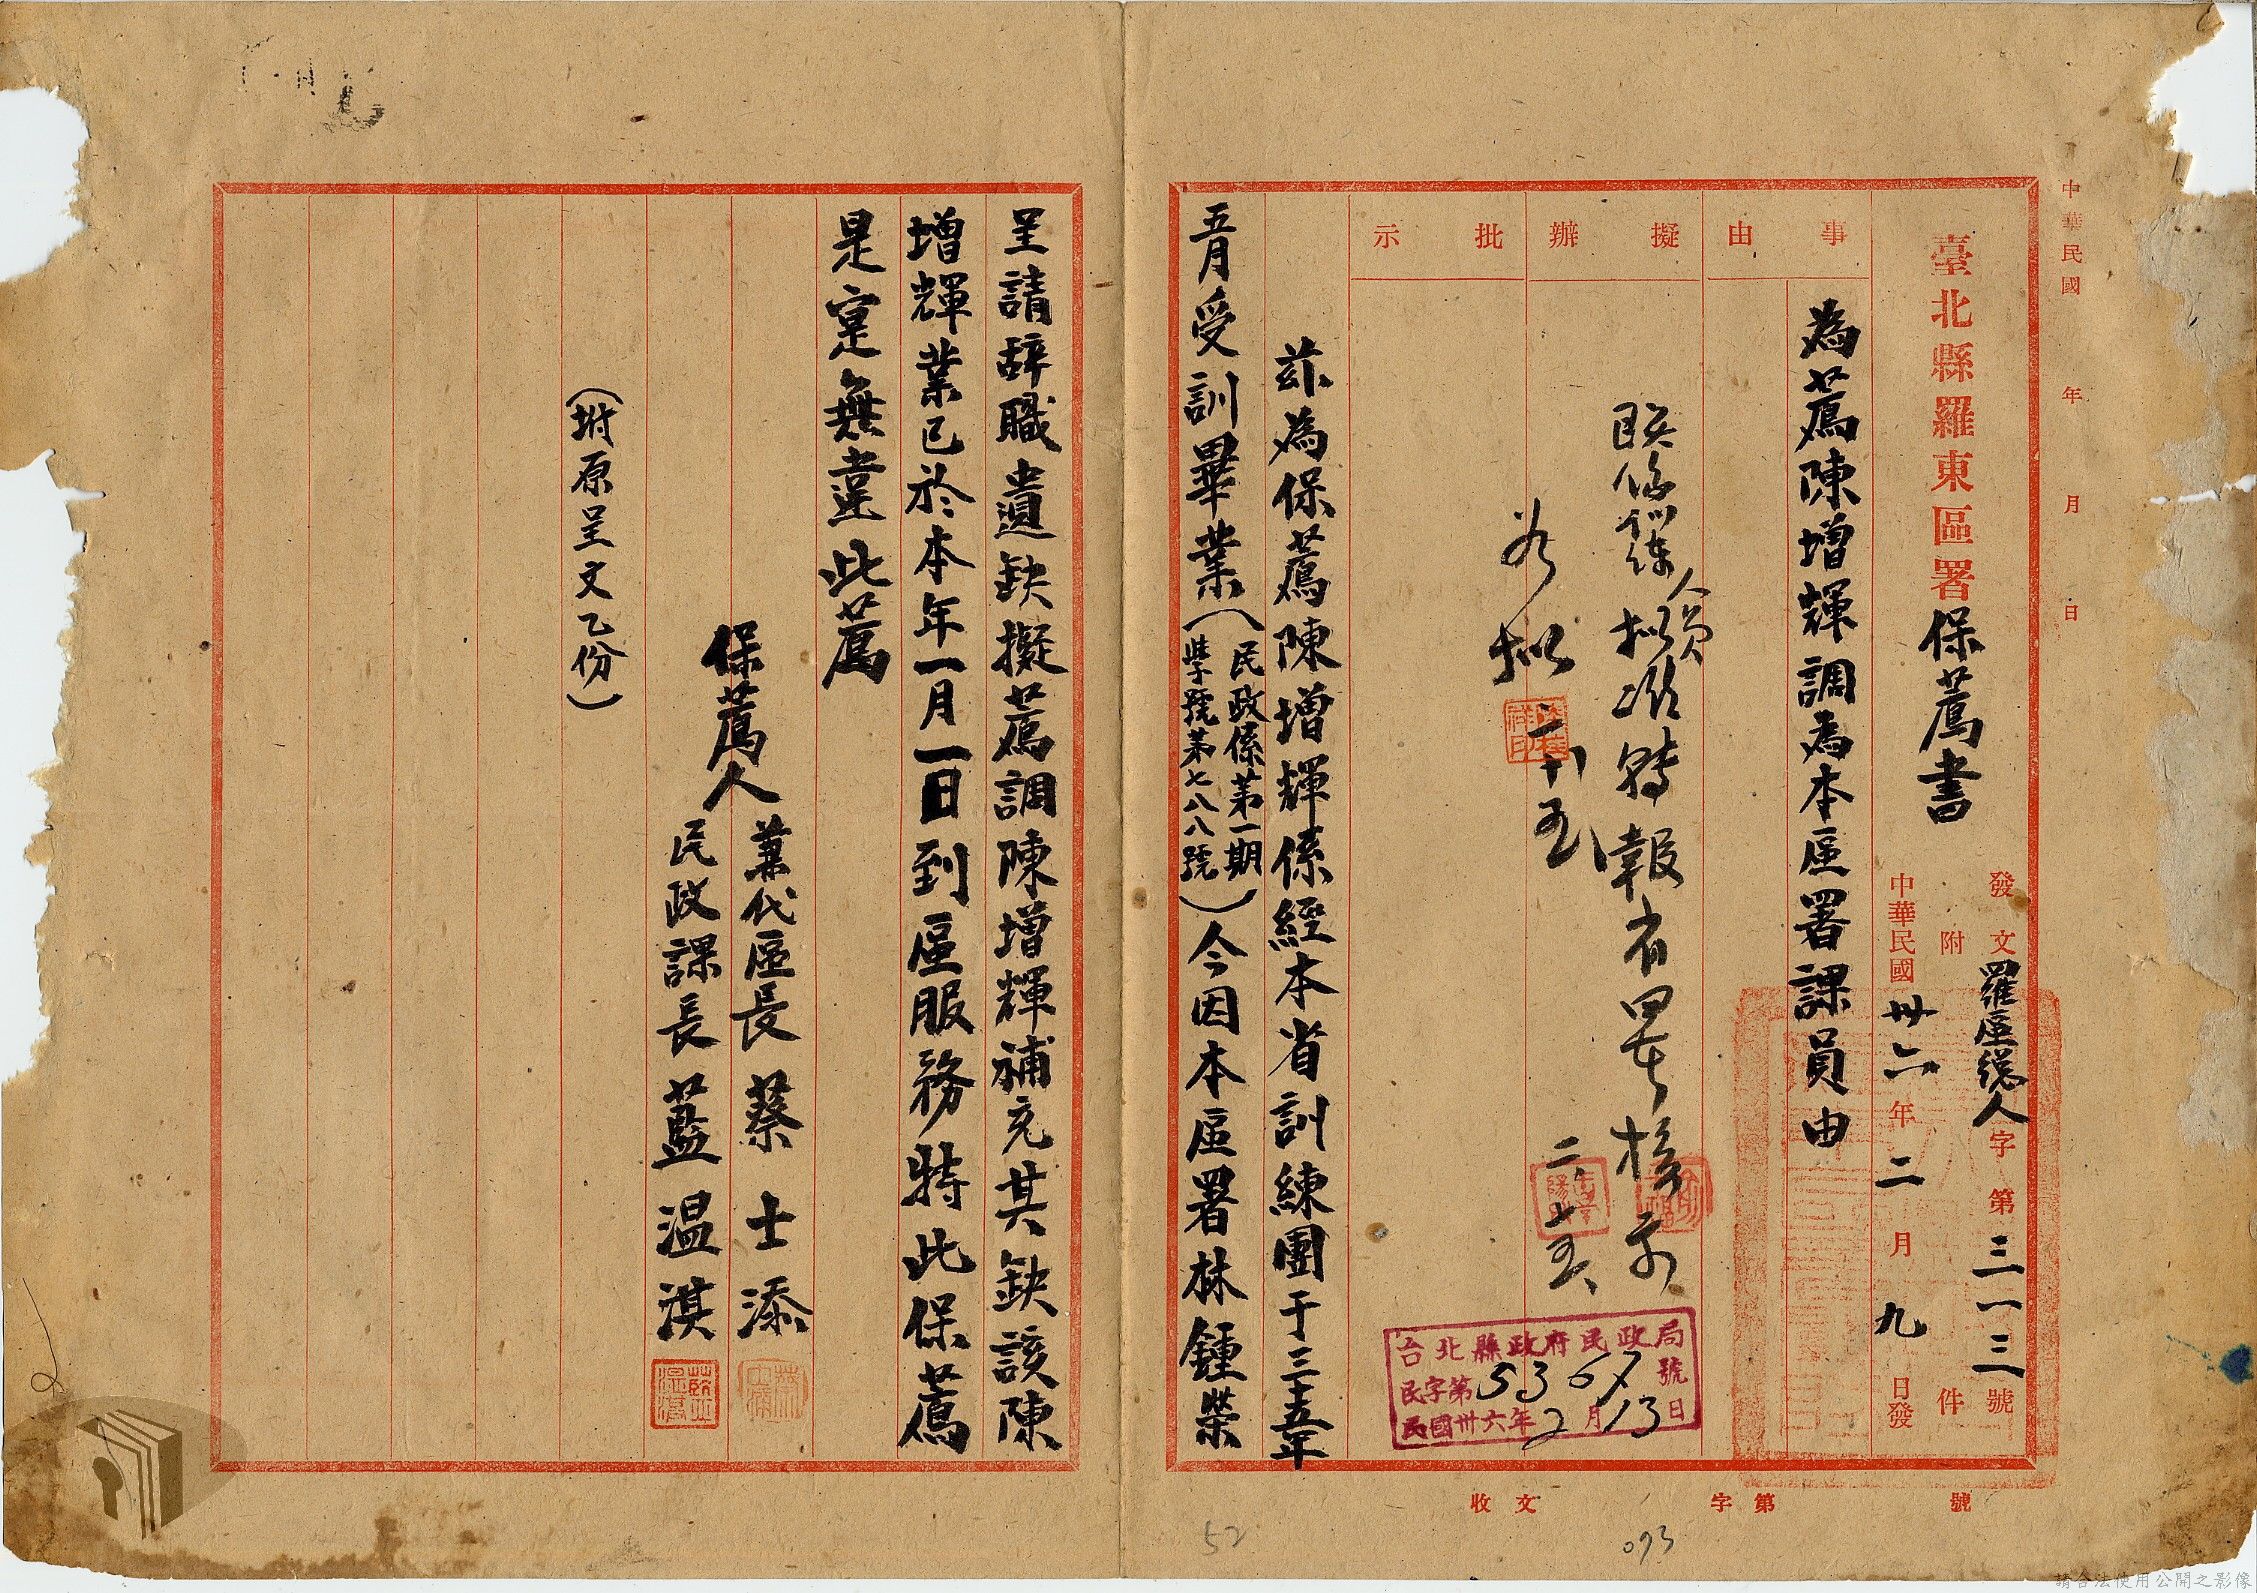 中華民國 年 月 日
臺北縣羅東區署保薦書
發文羅區總人字第三一三號
附 件
中華民國卅六年二月九日發
事由
為薦陳增輝調為本區署課員由
擬辦
人員擬准轉報省署核示
批示
如擬
茲為保薦陳增輝係經本省訓練團于三五年
五月受訓畢業(民政係第一期
學號第七八八號)今因本區署林鍾榮
台北縣政府民政局
民字第5367號
民國卅六年2月13日
收文 字第 號
093
52
呈請辞職遺缺擬薦調陳增輝補充其缺該陳
增輝業已於本年一月一日到區服務特此保薦
是寔無違此薦
保薦人
兼代區長 蔡士添
民政課長 藍温淇
(坿原呈文乙份)
請合法使用公開之影像